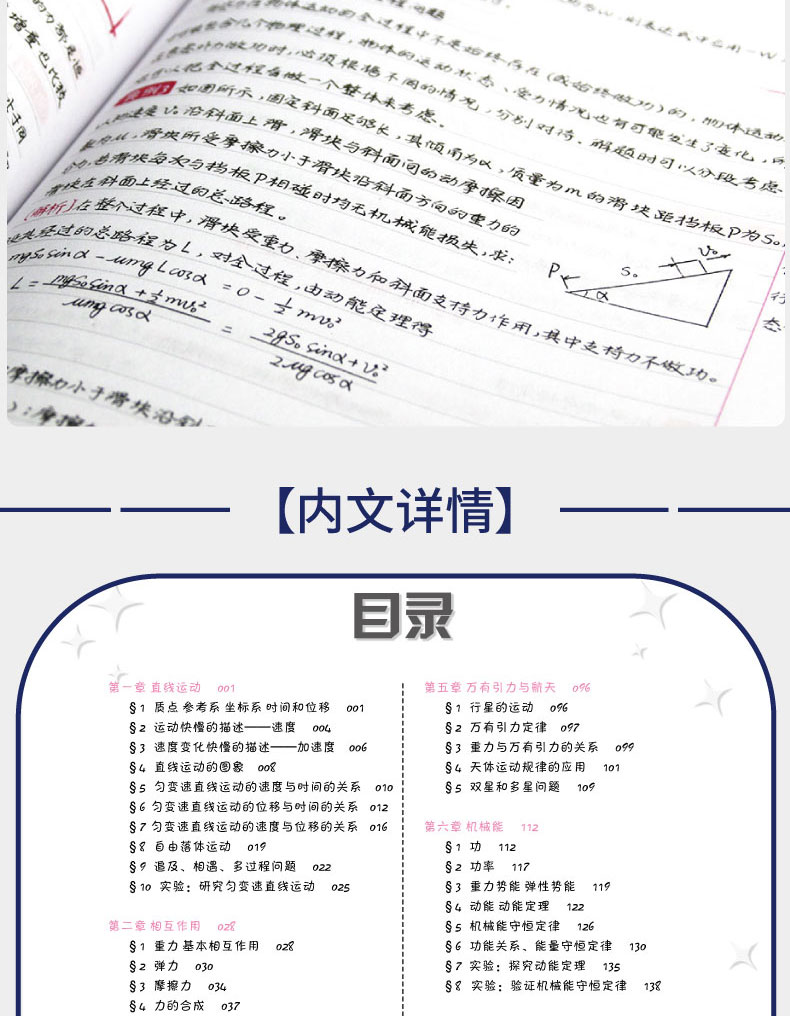 (或始终做功)的,物体运动
几个物理过程,物体的运动状态、受力情况也有可能发生了变化,
外力做功时,必须根据不同的情况,分别对待。解题时可以分段考虑,
以把全过程看做一个整体来考虑。
如图所示,固定斜面足够长,其倾角为α,质量为m的滑块距挡板P为S₀,
V₀沿斜面上滑,滑块与斜面间的动摩擦因
滑块所受摩擦力小于滑块沿斜面方向的重力的
滑块每次与挡板P相碰时均无机械能损失,求:
滑块在斜面上经过的总路程。
P
S₀
V₀
α
[解析]在整个过程中,滑块受重力、摩擦力和斜面支持力作用,其中支持力不做功。
经过的总路程为L,对全过程,由动能定理得
mgS₀sinα-umgLcosα=0-½mv₀²
L=(mgS₀sinα+½mv₀²)/(μmgcosα)=(2gS₀sinα+v₀²)/(2μgcosα)
摩擦力小于滑块沿斜
【内文详情】
目录
第一章 直线运动 001
§1 质点 参考系 坐标系 时间和位移 001
§2 运动快慢的描述——速度 004
§3 速度变化快慢的描述——加速度 006
§4 直线运动的图象 008
§5 匀变速直线运动的速度与时间的关系 010
§6 匀变速直线运动的位移与时间的关系 012
§7 匀变速直线运动的速度与位移的关系 016
§8 自由落体运动 019
§9 追及、相遇、多过程问题 022
§10 实验:研究匀变速直线运动 025
第二章 相互作用 028
§1 重力 基本相互作用 028
§2 弹力 030
§3 摩擦力 034
§4 力的合成 037
第五章 万有引力与航天 096
§1 行星的运动 096
§2 万有引力定律 097
§3 重力与万有引力的关系 099
§4 天体运动规律的应用 101
§5 双星和多星问题 109
第六章 机械能 112
§1 功 112
§2 功率 117
§3 重力势能 弹性势能 119
§4 动能 动能定理 122
§5 机械能守恒定律 126
§6 功能关系、能量守恒定律 130
§7 实验:探究动能定理 135
§8 实验:验证机械能守恒定律 138